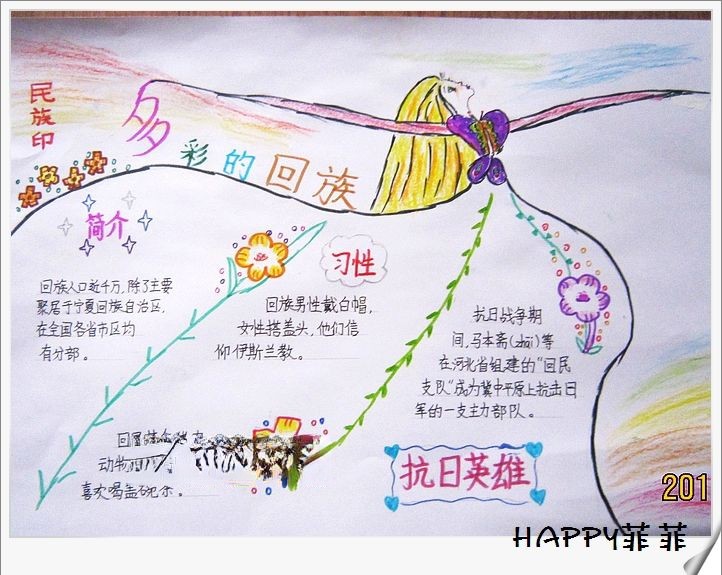 民族印
多彩的回族
简介
回族人口近千万,除了主要
聚居于宁夏回族自治区,
在全国各省市区均
有分部。
习性
回族男性戴白帽,
女性搭盖头,他们信
仰伊斯兰教。
抗日战争期
间,马本斋(zhāi)等
在河北省组建的“回民
支队”成为冀中平原上抗击日
军的一支主力部队。
动物
喜欢喝盖碗茶。
抗日英雄
201
HAPPY菲菲